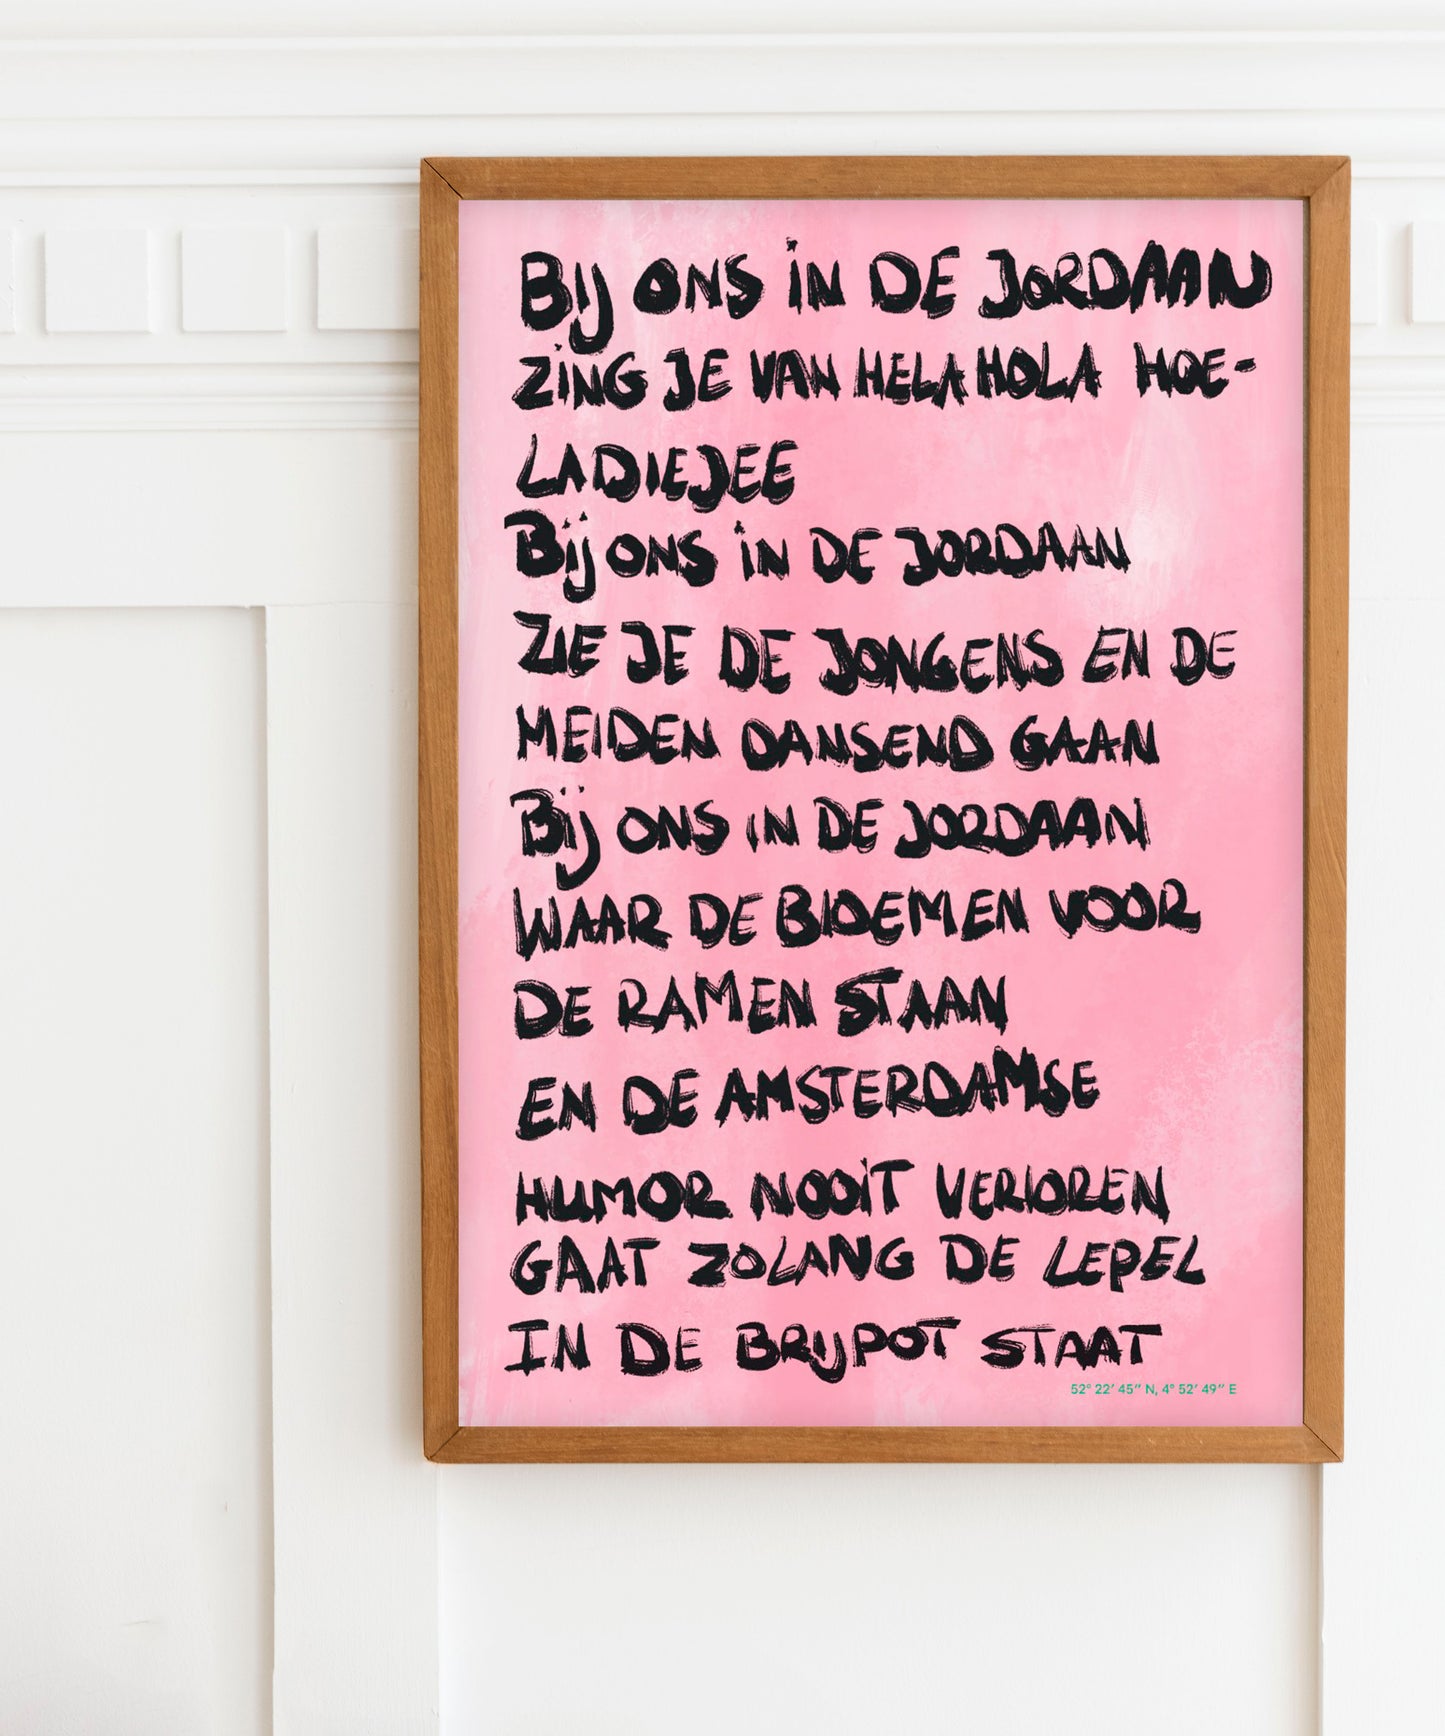 BIJ ONS IN DE JORDAAN
ZING JE VAN HELA HOLA HOE-
LADIEJEE
BIJ ONS IN DE JORDAAN
ZIE JE DE JONGENS EN DE
MEIDEN DANSEND GAAN
BIJ ONS IN DE JORDAAN
WAAR DE BLOEMEN VOOR
DE RAMEN STAAN
EN DE AMSTERDAMSE
HUMOR NOOIT VERLOREN
GAAT ZOLANG DE LEPEL
IN DE BRIJPOT STAAT
52° 22′ 45″ N, 4° 52′ 49″ E